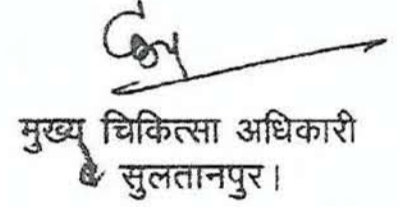 मुख्य चिकित्सा अधिकारी
सुलतानपुर।